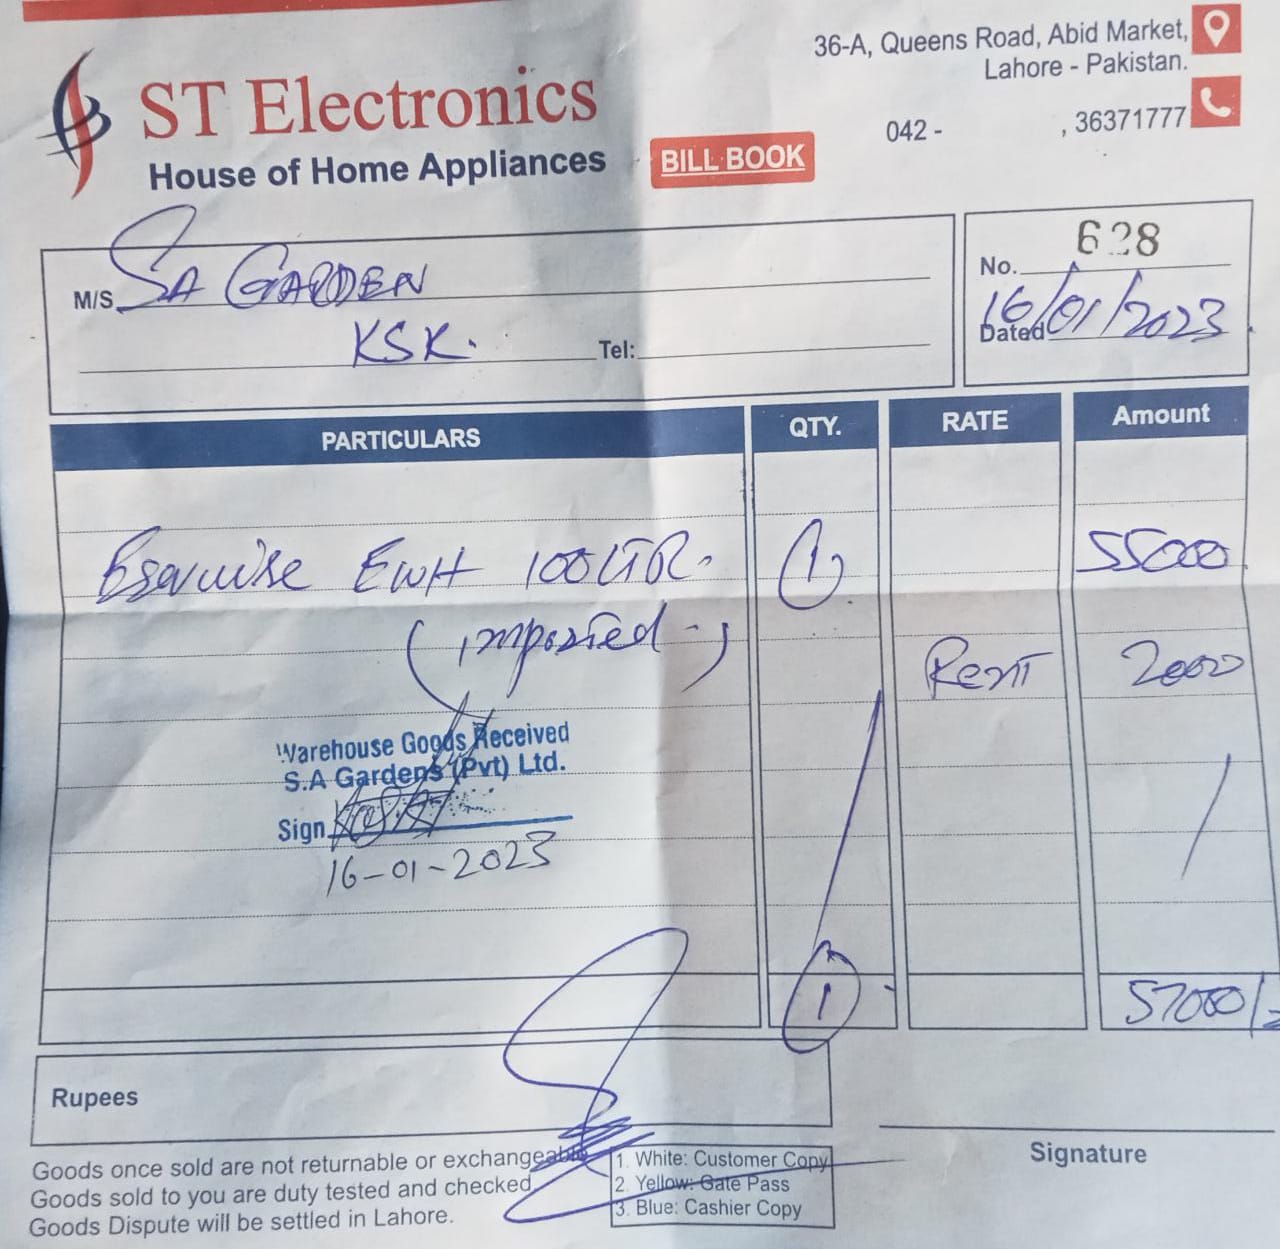 ST Electronics
House of Home Appliances
BILL BOOK
36-A, Queens Road, Abid Market,
Lahore - Pakistan.
042 - , 36371777
M/S SA GARDEN
KSK.
Tel:
No. 628
Dated 16/01/2023
PARTICULARS QTY. RATE Amount
EWH 100 LTR. 1 55000
(imported.)
Rent 2000
Warehouse Goods Received
S.A Gardens (Pvt) Ltd.
Sign
16-01-2023
1 57000/=
Rupees
Signature
Goods once sold are not returnable or exchangeable
Goods sold to you are duty tested and checked
Goods Dispute will be settled in Lahore.
1. White: Customer Copy
2. Yellow: Gate Pass
3. Blue: Cashier Copy